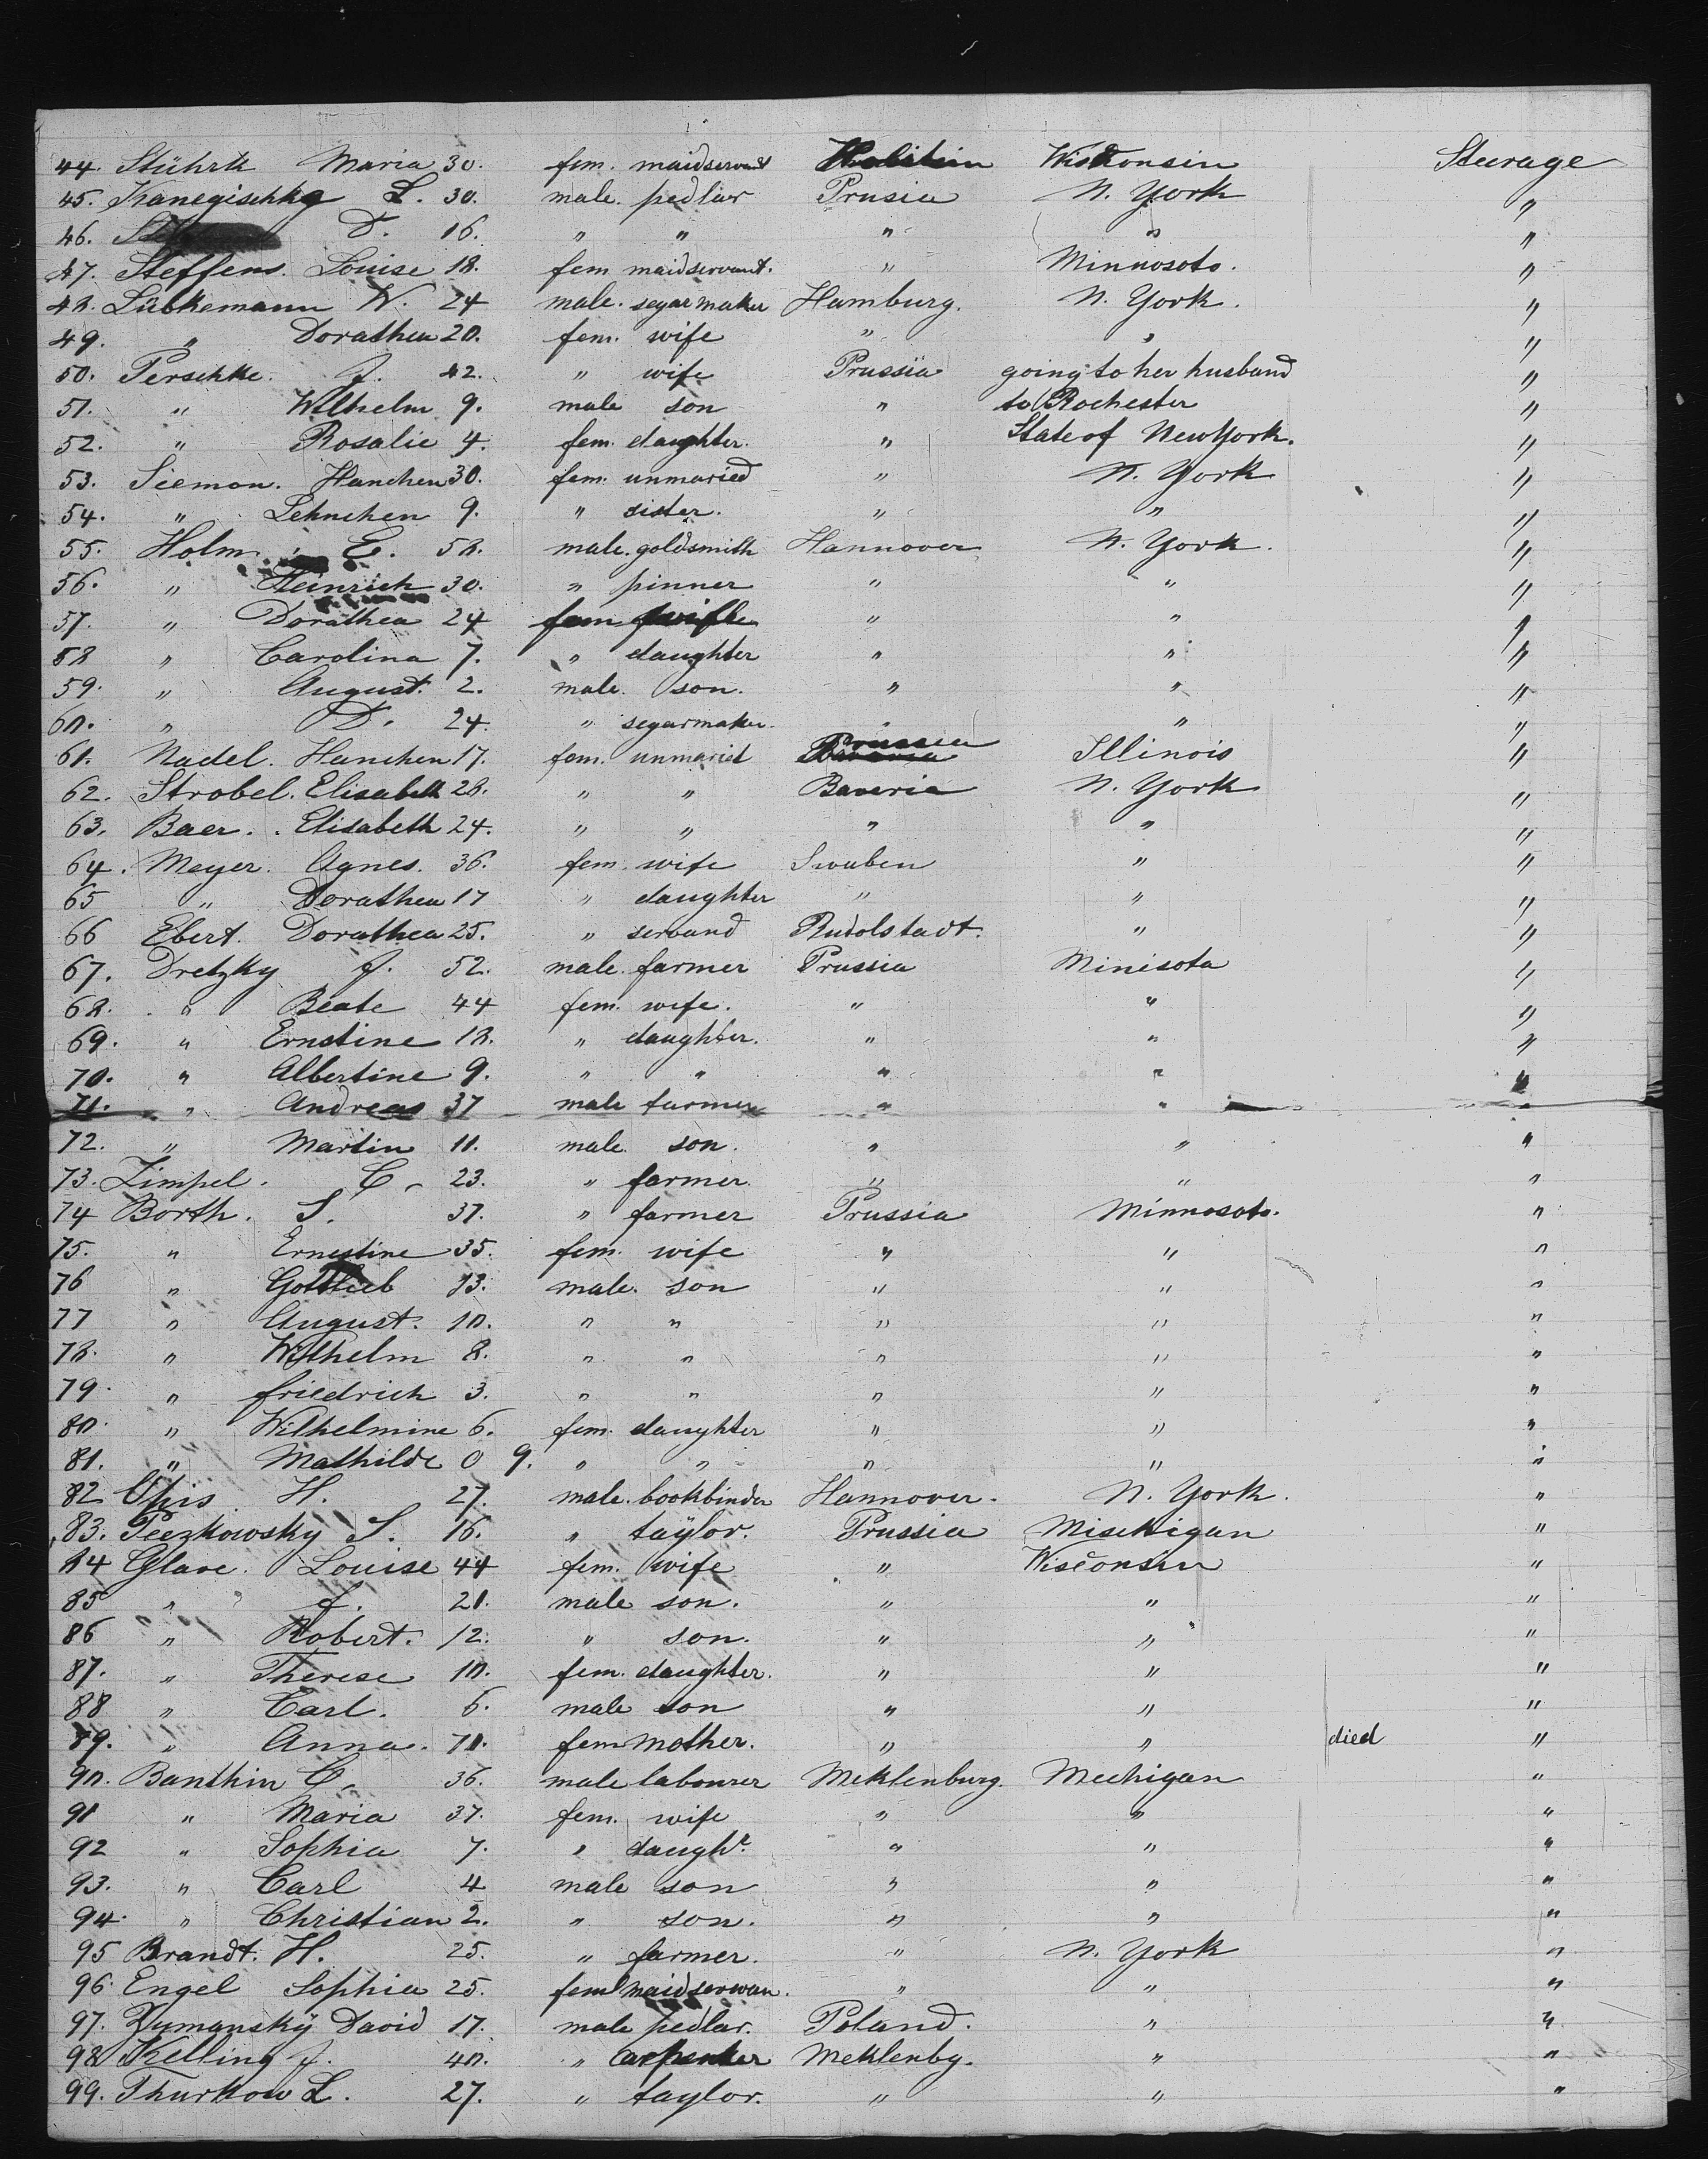 44. Stührk Maria 30. fem. maidservant Holstein Wisconsin Steerage
45. Kanegischkg L. 30. male. pedlar Prusia N. York "
46. D. 16. " " " " "
47. Steffens. Louise 18. fem maidservant. " Minnosoto. "
48. Lübkemann W. 24 male. segar maker Hamburg. N. York. "
49. " Dorathea 20. fem. wife " " "
50. Perschke. J. 42. " wife Prussia going to her husband "
51. " Wilhelm 9. male son " to Rochester "
52. " Rosalie 4. fem. daughter. " State of New York. "
53. Siemon. Hanchen 30. fem. unmaried " N. York "
54. " Lehnchen 9. " sister. " " "
55. Holm. E. 58. male. goldsmith Hannover N. York. "
56. " Heinrich 30. " pinner " " "
57. " Dorathea 24 fem wife " " "
58 " Carolina 7. " daughter " " "
59. " August. 2. male. son. " " "
60. " D. 24. " segarmaker. " " "
61. Nadel. Hanchen 17. fem. unmaried Prussia Illinois "
62. Strobel. Elisabeth 28. " " Baveria N. York "
63. Baer. Elisabeth 24. " " " " "
64. Meyer. Agnes. 36. fem. wife Swaben " "
65 " Dorathea 17 " daughter " " "
66 Ebert. Dorathea 25. " servand Rudolstadt. " "
67. Dretzky J. 52. male. farmer Prussia Minisota "
68. " Beate 44 fem. wife. " " "
69. " Ernstine 18. " daughter. " " "
70. " Albertine 9. " " " " "
71. " Andreas 37 male farmer " " "
72. " Martin 11. male. son. " " "
73. Zimpel. C. 23. " farmer. " " "
74 Borth. S. 37. " farmer Prussia Minnosoto. "
75. " Ernestine 35. fem. wife " " "
76 " Gottlieb 13. male. son " " "
77 " August. 10. " " " " "
78. " Wilhelm 8. " " " " "
79. " friedrich 3. " " " " "
80. " Wilhelmine 6. fem. daughter " " "
81. " Mathilde 0 9. " " " " "
82 Opis H. 27. male. bookbinder Hannover. N. York. "
83. Peezkowsky S. 16. " taylor. Prussia Mischigan "
84 Glave. Louise 44 fem. wife " Wisconsin "
85 " J. 21. male son. " " "
86 " Robert. 12. " son. " " "
87. " Therese 10. fem. daughter. " " "
88 " Carl. 6. male son " " "
89. " Anna. 70. fem mother. " " died "
90. Banthin C. 36. male labourer Meklenburg. Mechigan "
91 " Maria 37. fem. wife " " "
92 " Sophia 7. " daughr. " " "
93. " Carl 4 male son " " "
94. " Christian 2. " son. " " "
95 Brandt. H. 25. " farmer. " N. York "
96. Engel Sophia 25. fem maidserwan. " " "
97. Zymansky David 17. male pedlar. Poland. " "
98 Kelling J. 40. " Carpenter Meklenbg. " "
99. Thurkow L. 27. " taylor. " " "